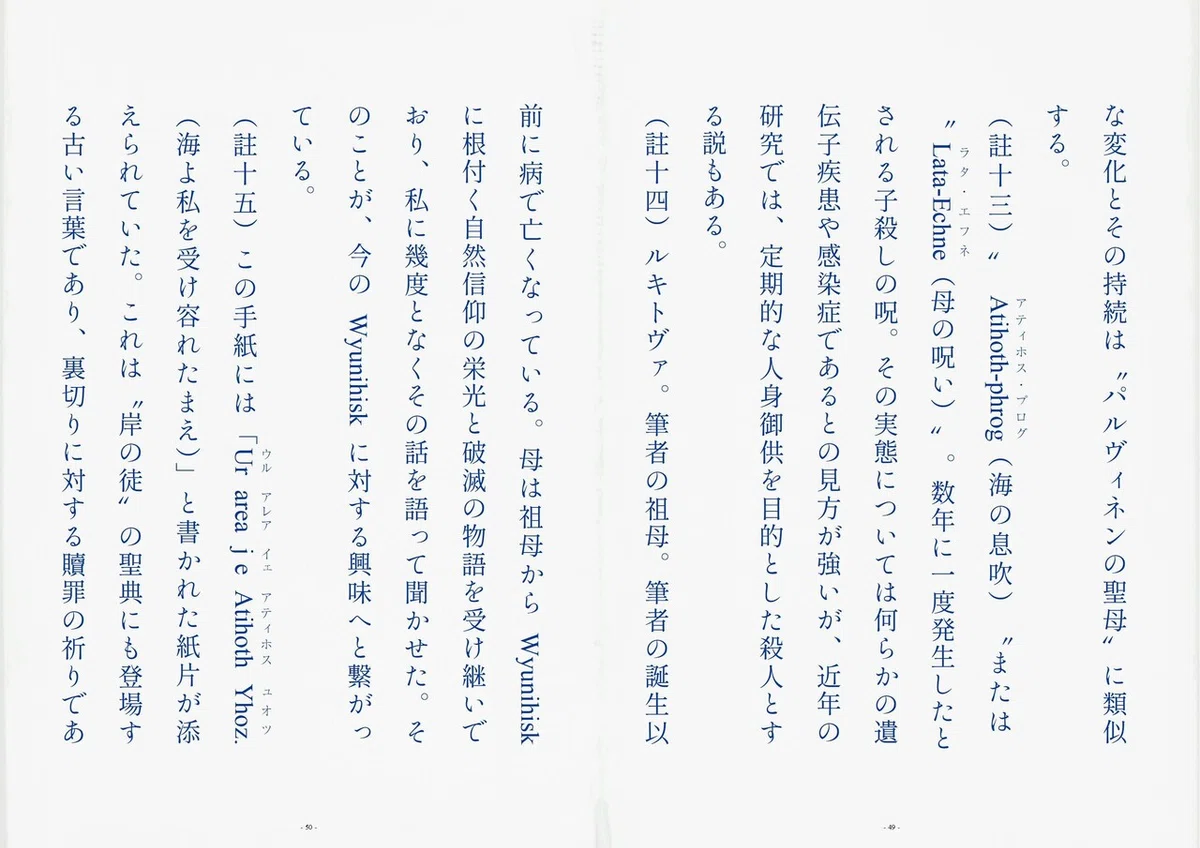 な変化とその持続は〝パルヴィネンの聖母〟に類似
する。
（註十三）〝 Atihoth-phrog（海の息吹） 〟または
アティホス・ブログ
〝 Lata-Echne（母の呪い） 〟。数年に一度発生したと
ラタ・エフネ
される子殺しの呪。その実態については何らかの遺
伝子疾患や感染症であるとの見方が強いが、近年の
研究では、定期的な人身御供を目的とした殺人とす
る説もある。
（註十四）ルキトヴァ。筆者の祖母。筆者の誕生以
- 49 -
前に病で亡くなっている。母は祖母から Wyunihisk
に根付く自然信仰の栄光と破滅の物語を受け継いで
おり、私に幾度となくその話を語って聞かせた。そ
のことが、今の Wyunihisk に対する興味へと繋がっ
ている。
（註十五）この手紙には「Ur area je Atihoth Yhoz.
ウル アレア イェ アティホス ユオツ
（海よ私を受け容れたまえ）」と書かれた紙片が添
えられていた。これは〝岸の徒〟の聖典にも登場す
る古い言葉であり、裏切りに対する贖罪の祈りであ
- 50 -